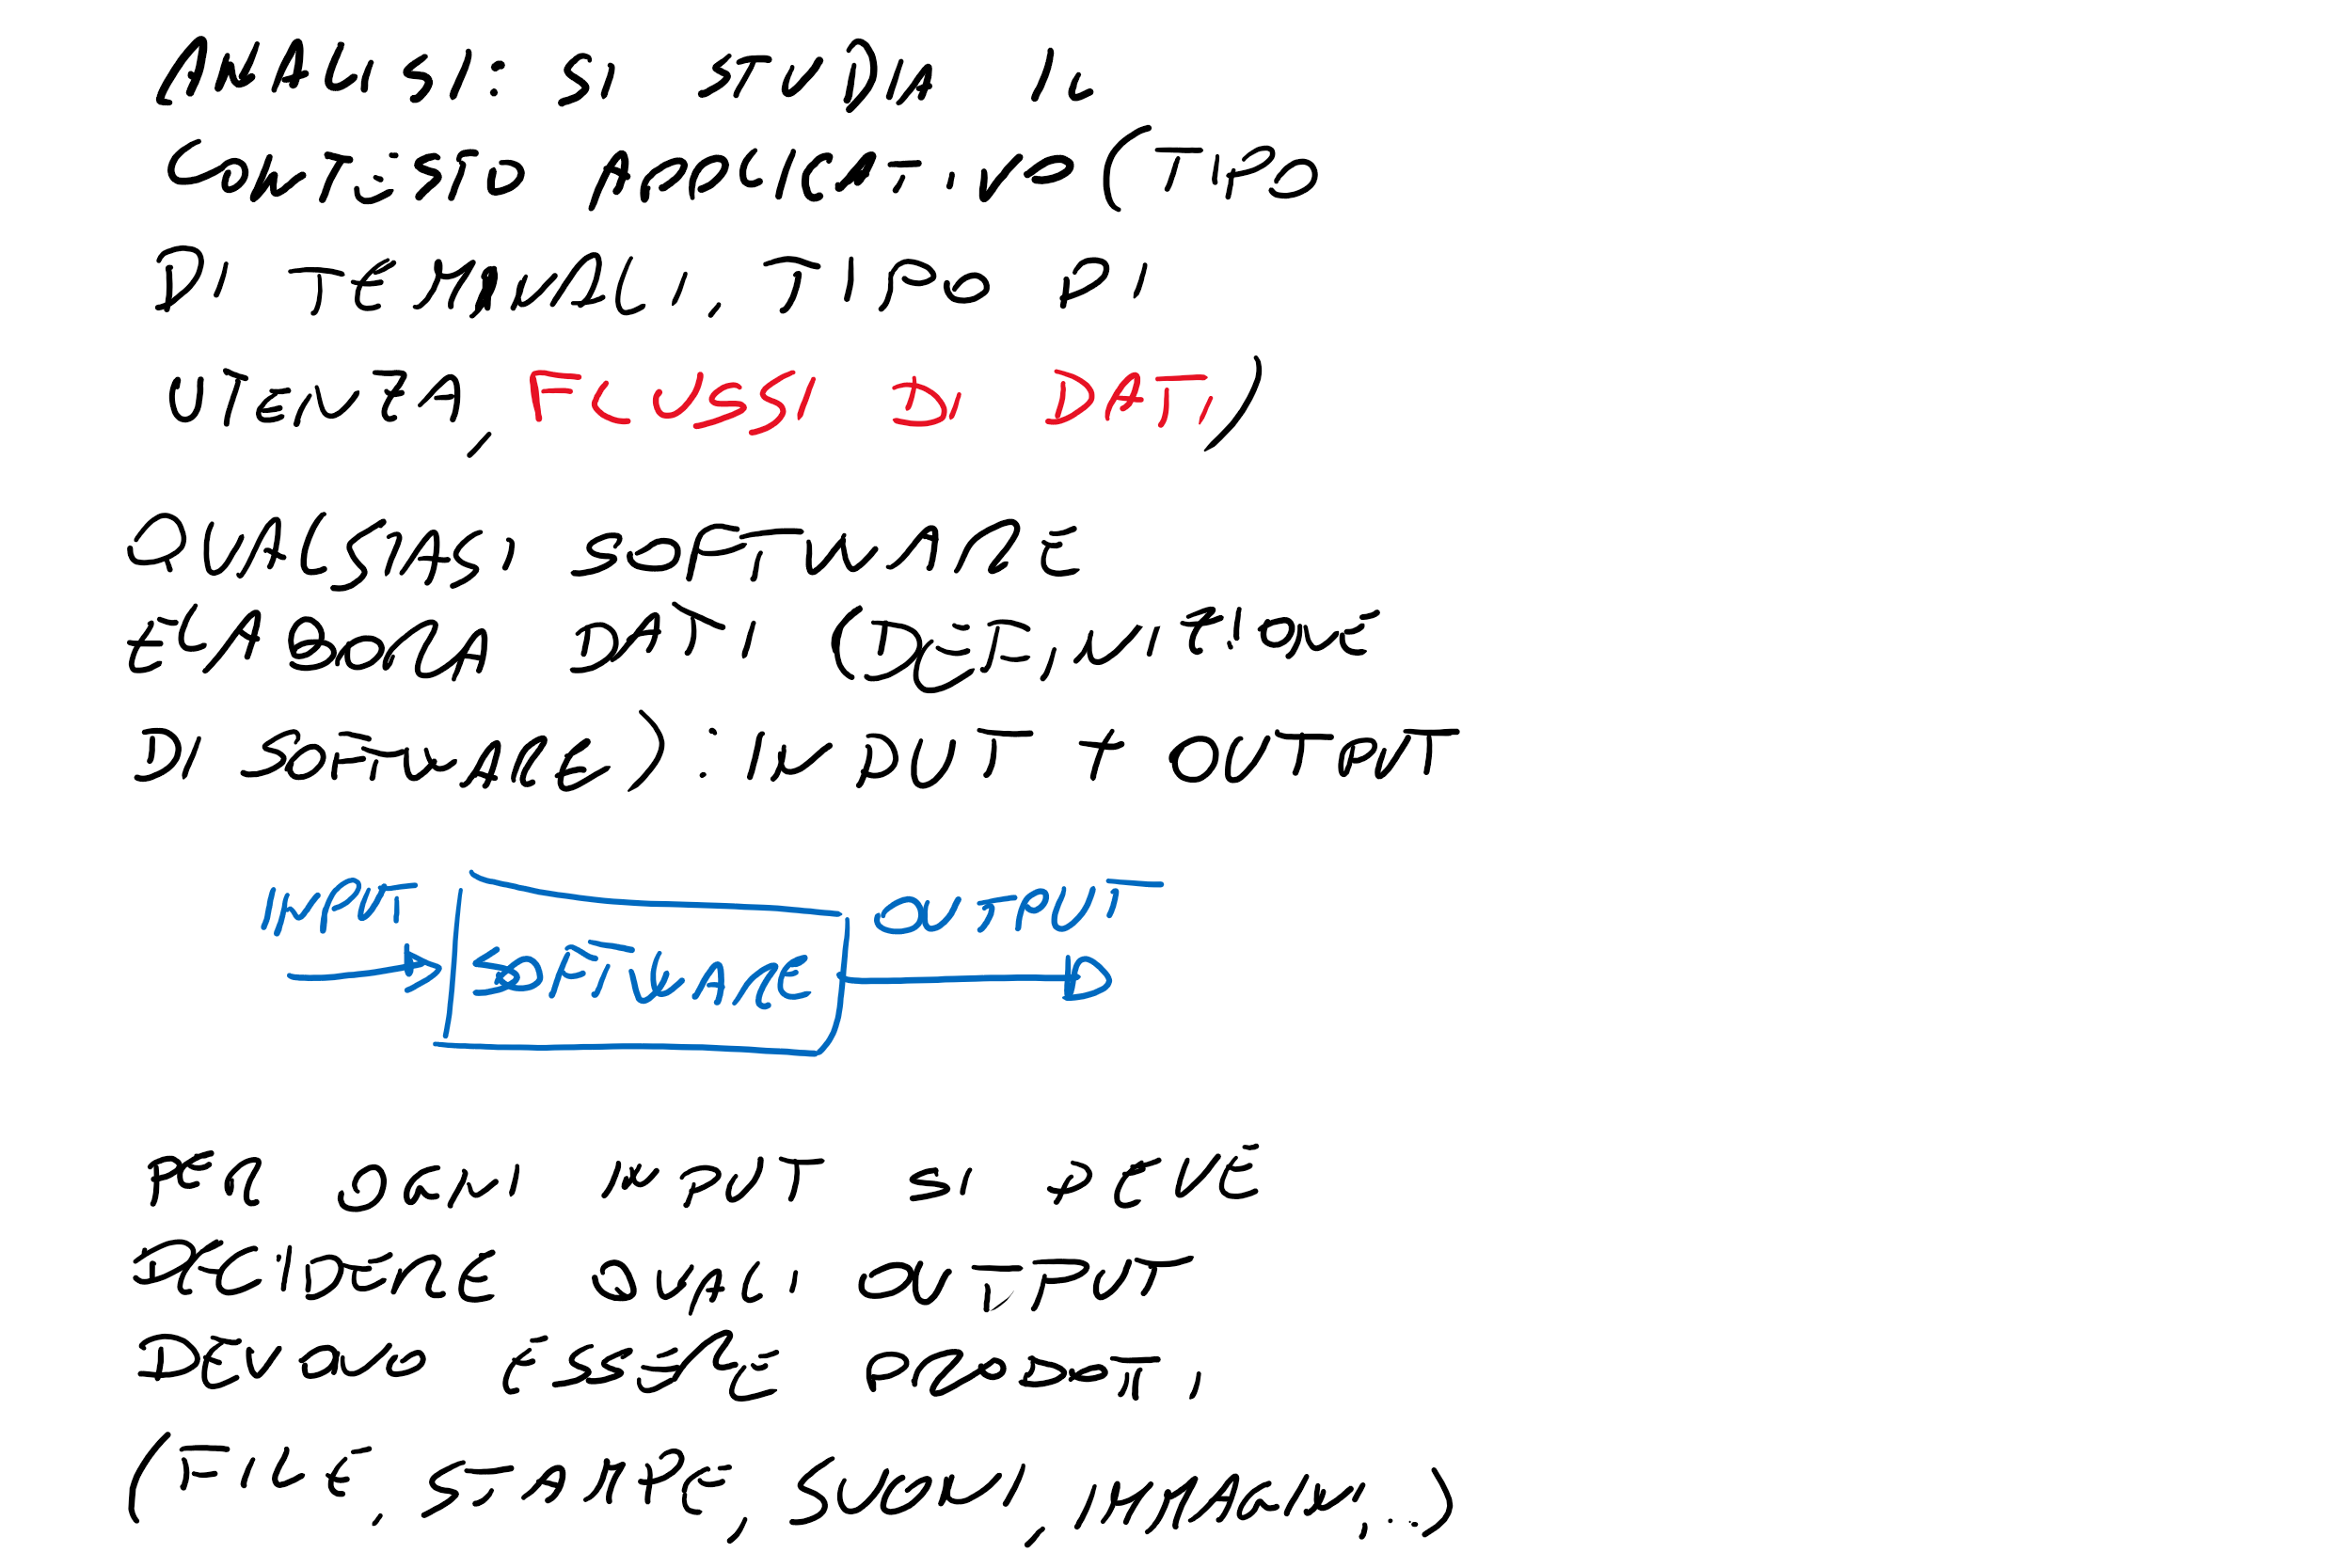 ANALISI: SI STUDIA IL
CONTESTO APPLICATIVO (TIPO
DI TERMINALI, TIPO DI
UTENZA, FLUSSI DI DATI)
QUALSIASI SOFTWARE
ELABORA DATI (DEFINIZIONE
DI SOFTWARE): INPUT + OUTPUT
INPUT
OUTPUT
SOFTWARE
PER OGNI INPUT SI DEVE
DECIDERE QUALI OUTPUT
DEVONO ESSERE PRODOTTI
(FILE, STAMPE, SUONI, IMMAGINI,...)